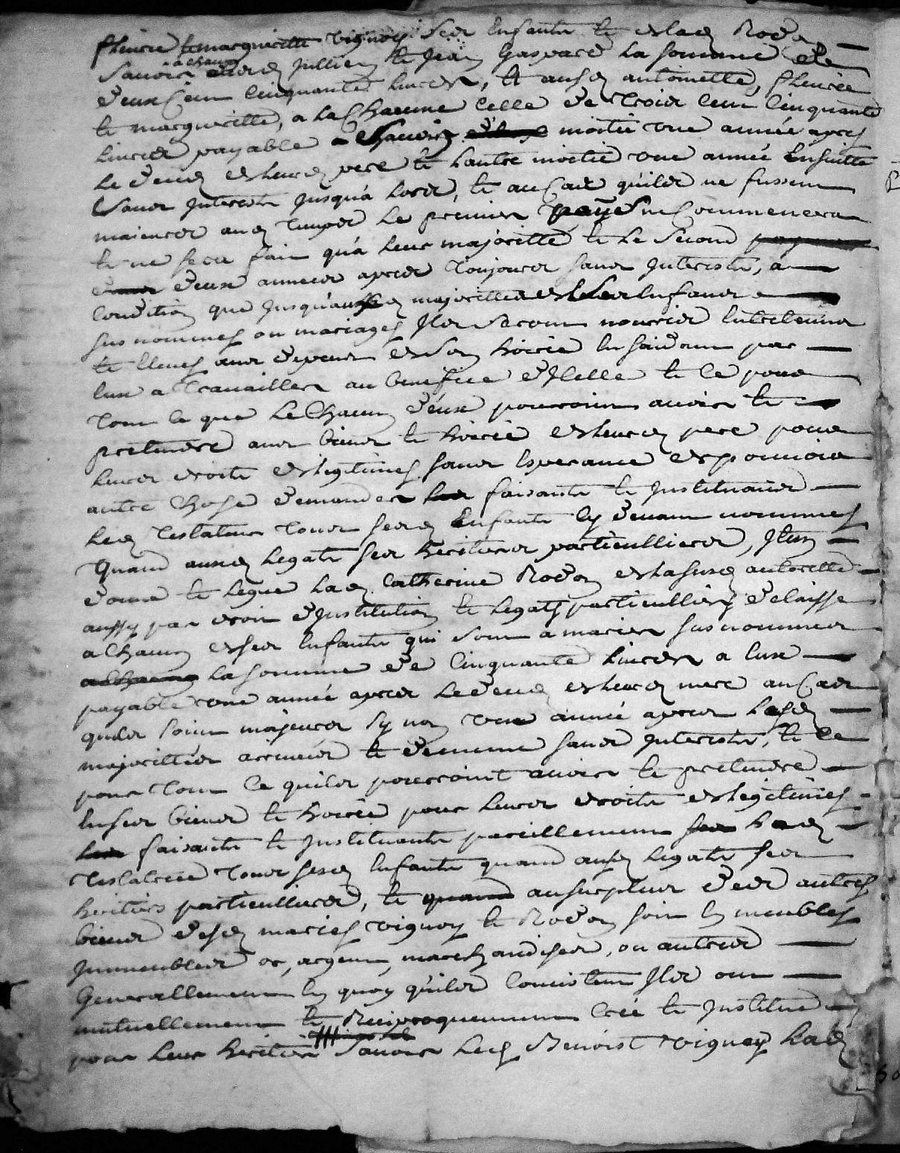 fleurie et margueritte vignoy ses Enfants et de lad Rodon
Savoir a chacun desd Jullien et Jean Gaspard la somme de
deux Cent Cinquante livres, Et ausd antoinette, fleurie
et marguerite, a la Chacune celle de trois Cent Cinquante
livres payable a Scavoir moitié une année apres
le deced desleurd pere et lautre moitié une année Ensuitte
sans Interests jusqua lors, et au Cas quils ne fussent
majeurs aud temps le premier payes ne Commencera
et ne sera fait qua leur majorité et le Second
deux années apres toujours sans Interests, a
condition que jusquausd majorittes desd Enfans
susnommes ou mariages Ils seront nourris Entretenus
et Eleves aux depens de son hoirie En faisant par
Eux a travailler au benefice dIcelle et ce pour
tout ce que le Chacun deux pourroint avoir et
pretendre aux biens et hoirie desleurd pere pour
leurs droits deslegitimes sans Esperance de pouvoir
autre Chose demander faisants et Instituants
led testateur tous sesd Enfants Cy devant nommes
quand ausd legats ses heritiers particulliers, Item
donne et legue lad Catherine Rodon de lasusd autorité
aussy par droit dInstitution et legats particulliers delaisse
a Chacun desses Enfants qui sont a marier susnommes
la somme de Cinquante livres a Eux
payable une année apres le deced desleurd mere au Cas
quils soint majeurs sy non une année apres lesd
majorittés arrivées et dememe sans Interests, et ce
pour tout ce quils pourroint avoir et pretendre
En ses biens et hoirie pour leurs droits deslegitimes
faisants et Instituants pareillement lad
testatrice tous sesd Enfants quand ausd legats ses
heritiers particulliers, et au surplus des autres
biens desd maries vignoy et Rodon soit En meubles
Immeubles or, argent, marchandises, ou autres
Generallement En quoy quils Consistent Ils ont
mutuellement et Reciproquement Créé et Institué
pour leurs heritiers Savoir led Benoist vignoy lad